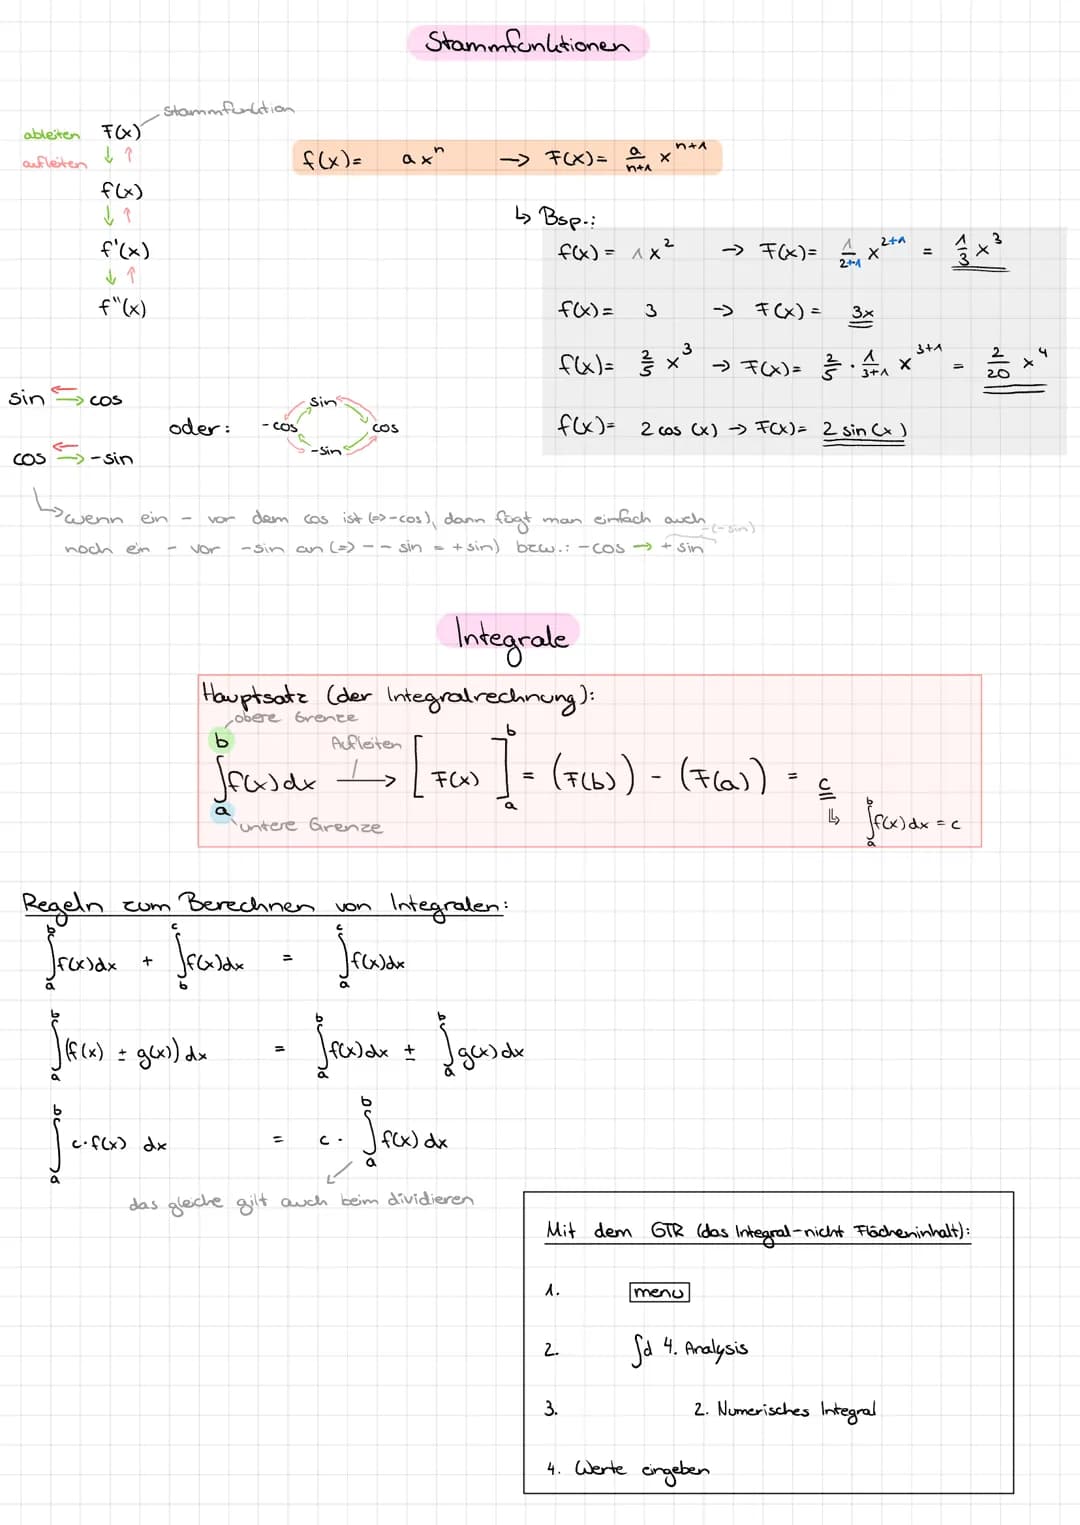 Stammfunktionen
Stammfunktion
ableiten F(x)
aufleiten ↓ ↑
f(x)
↓ ↑
f'(x)
↓ ↑
f"(x)
f(x)= ax^n → F(x)= a/(n+1) x^(n+1)
↳ Bsp.:
f(x)= 1x^2 → F(x)= 1/(2+1) x^(2+1) = 1/3 x^3
f(x)= 3 → F(x)= 3x
f(x)= 2/5 x^3 → F(x)= 2/5 · 1/(3+1) x^(3+1) = 2/20 x^4
f(x)= 2 cos (x) → F(x)= 2 sin (x)
sin ⇄ cos
cos ⇄ -sin
oder: sin cos -sin -cos
↳ wenn ein - vor dem cos ist (=>-cos), dann fügt man einfach auch
noch ein - vor -sin an (=> -- sin = +sin) bzw.: -cos → +sin
-(-sin)
Integrale
Hauptsatz (der Integralrechnung):
obere Grenze
Aufleiten
∫_a^b f(x)dx → [F(x)]_a^b = (F(b)) - (F(a)) = c
untere Grenze
↳ ∫_a^b f(x)dx = c
Regeln zum Berechnen von Integralen:
∫_a^b f(x)dx + ∫_b^c f(x)dx = ∫_a^c f(x)dx
∫_a^b (f(x) ± g(x)) dx = ∫_a^b f(x)dx ± ∫_a^b g(x)dx
∫_a^b c·f(x) dx = c · ∫_a^b f(x) dx
das gleiche gilt auch beim dividieren
Mit dem GTR (das Integral-nicht Flächeninhalt):
1. menu
2. ∫d 4. Analysis
3. 2. Numerisches Integral
4. Werte eingeben